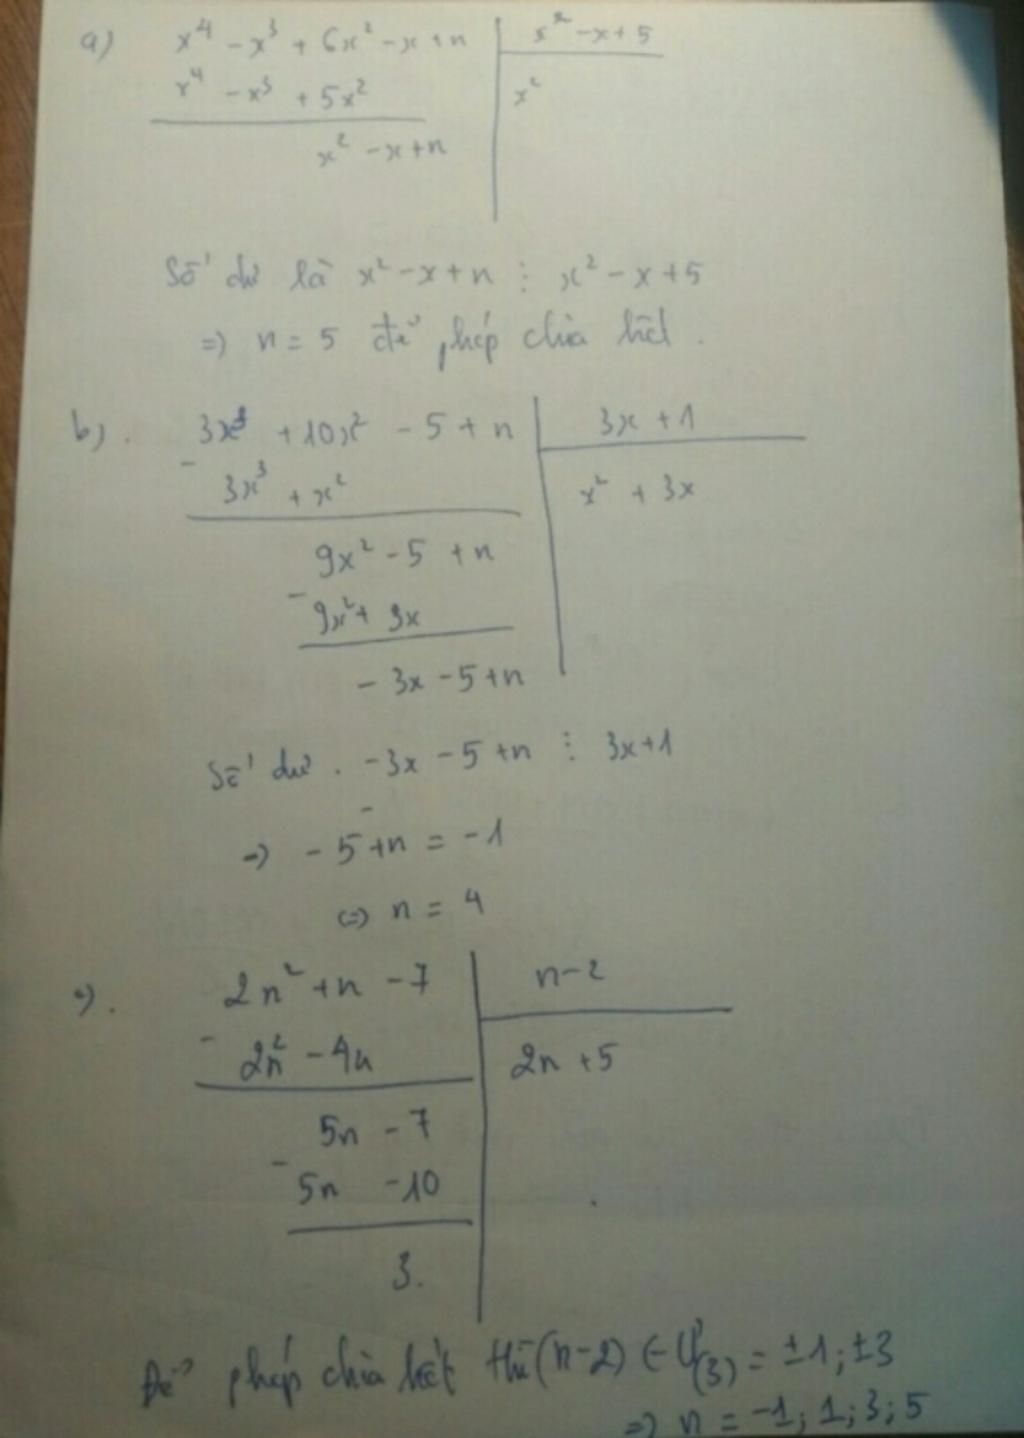 a) x⁴ - x³ + 6x² - x + n | x² - x + 5
x⁴ - x³ + 5x² | x²
x² - x + n
Số dư là x² - x + n ⋮ x² - x + 5
=> n = 5 để phép chia hết.
b). 3x³ + 10x² - 5 + n | 3x + 1
- 3x³ + x² | x² + 3x
9x² - 5 + n
- 9x² + 3x
- 3x - 5 + n
Số dư. - 3x - 5 + n ⋮ 3x + 1
=> - 5 + n = - 1
<=> n = 4
c). 2n² + n - 7 | n - 2
- 2n² - 4n | 2n + 5
5n - 7
- 5n - 10
3.
Để phép chia hết thì (n - 2) ∈ Ư(3) = ±1; ±3
=> n = -1; 1; 3; 5